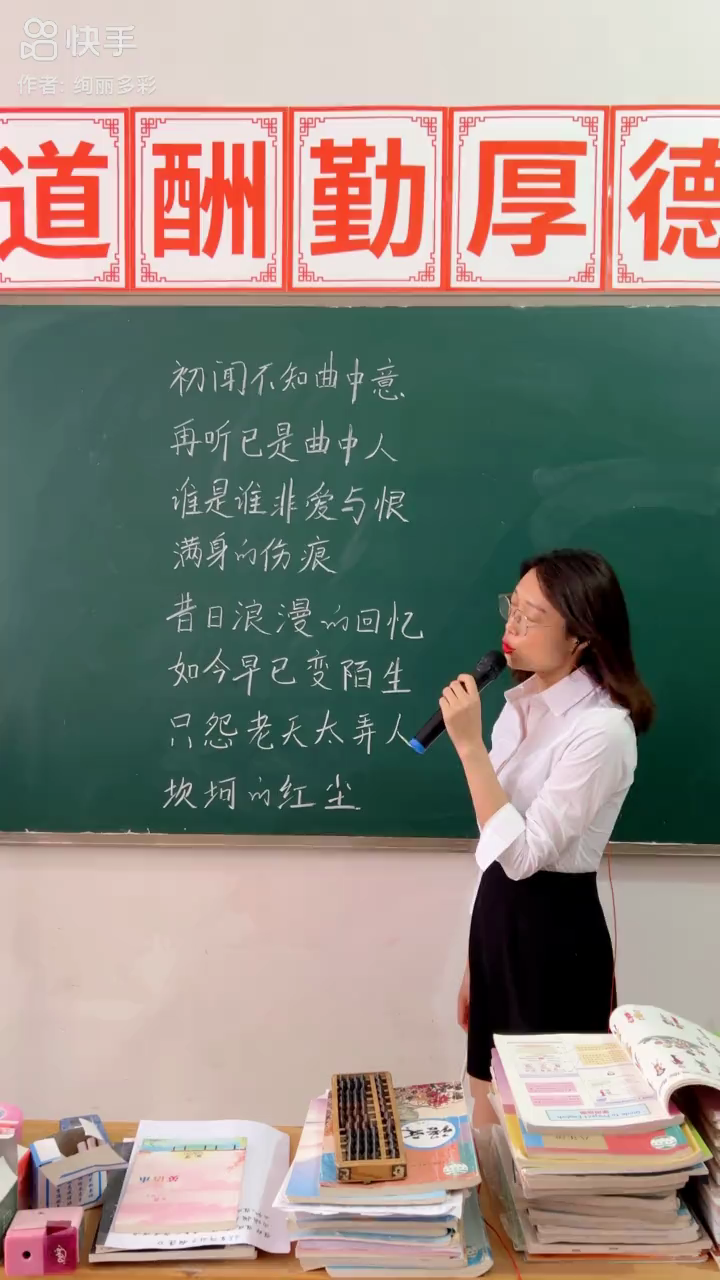 快手
作者: 绚丽多彩
道酬勤厚德
初闻不知曲中意
再听已是曲中人
谁是谁非爱与恨
满身的伤痕
昔日浪漫的回忆
如今早已变陌生
只怨老天太弄人
坎坷的红尘